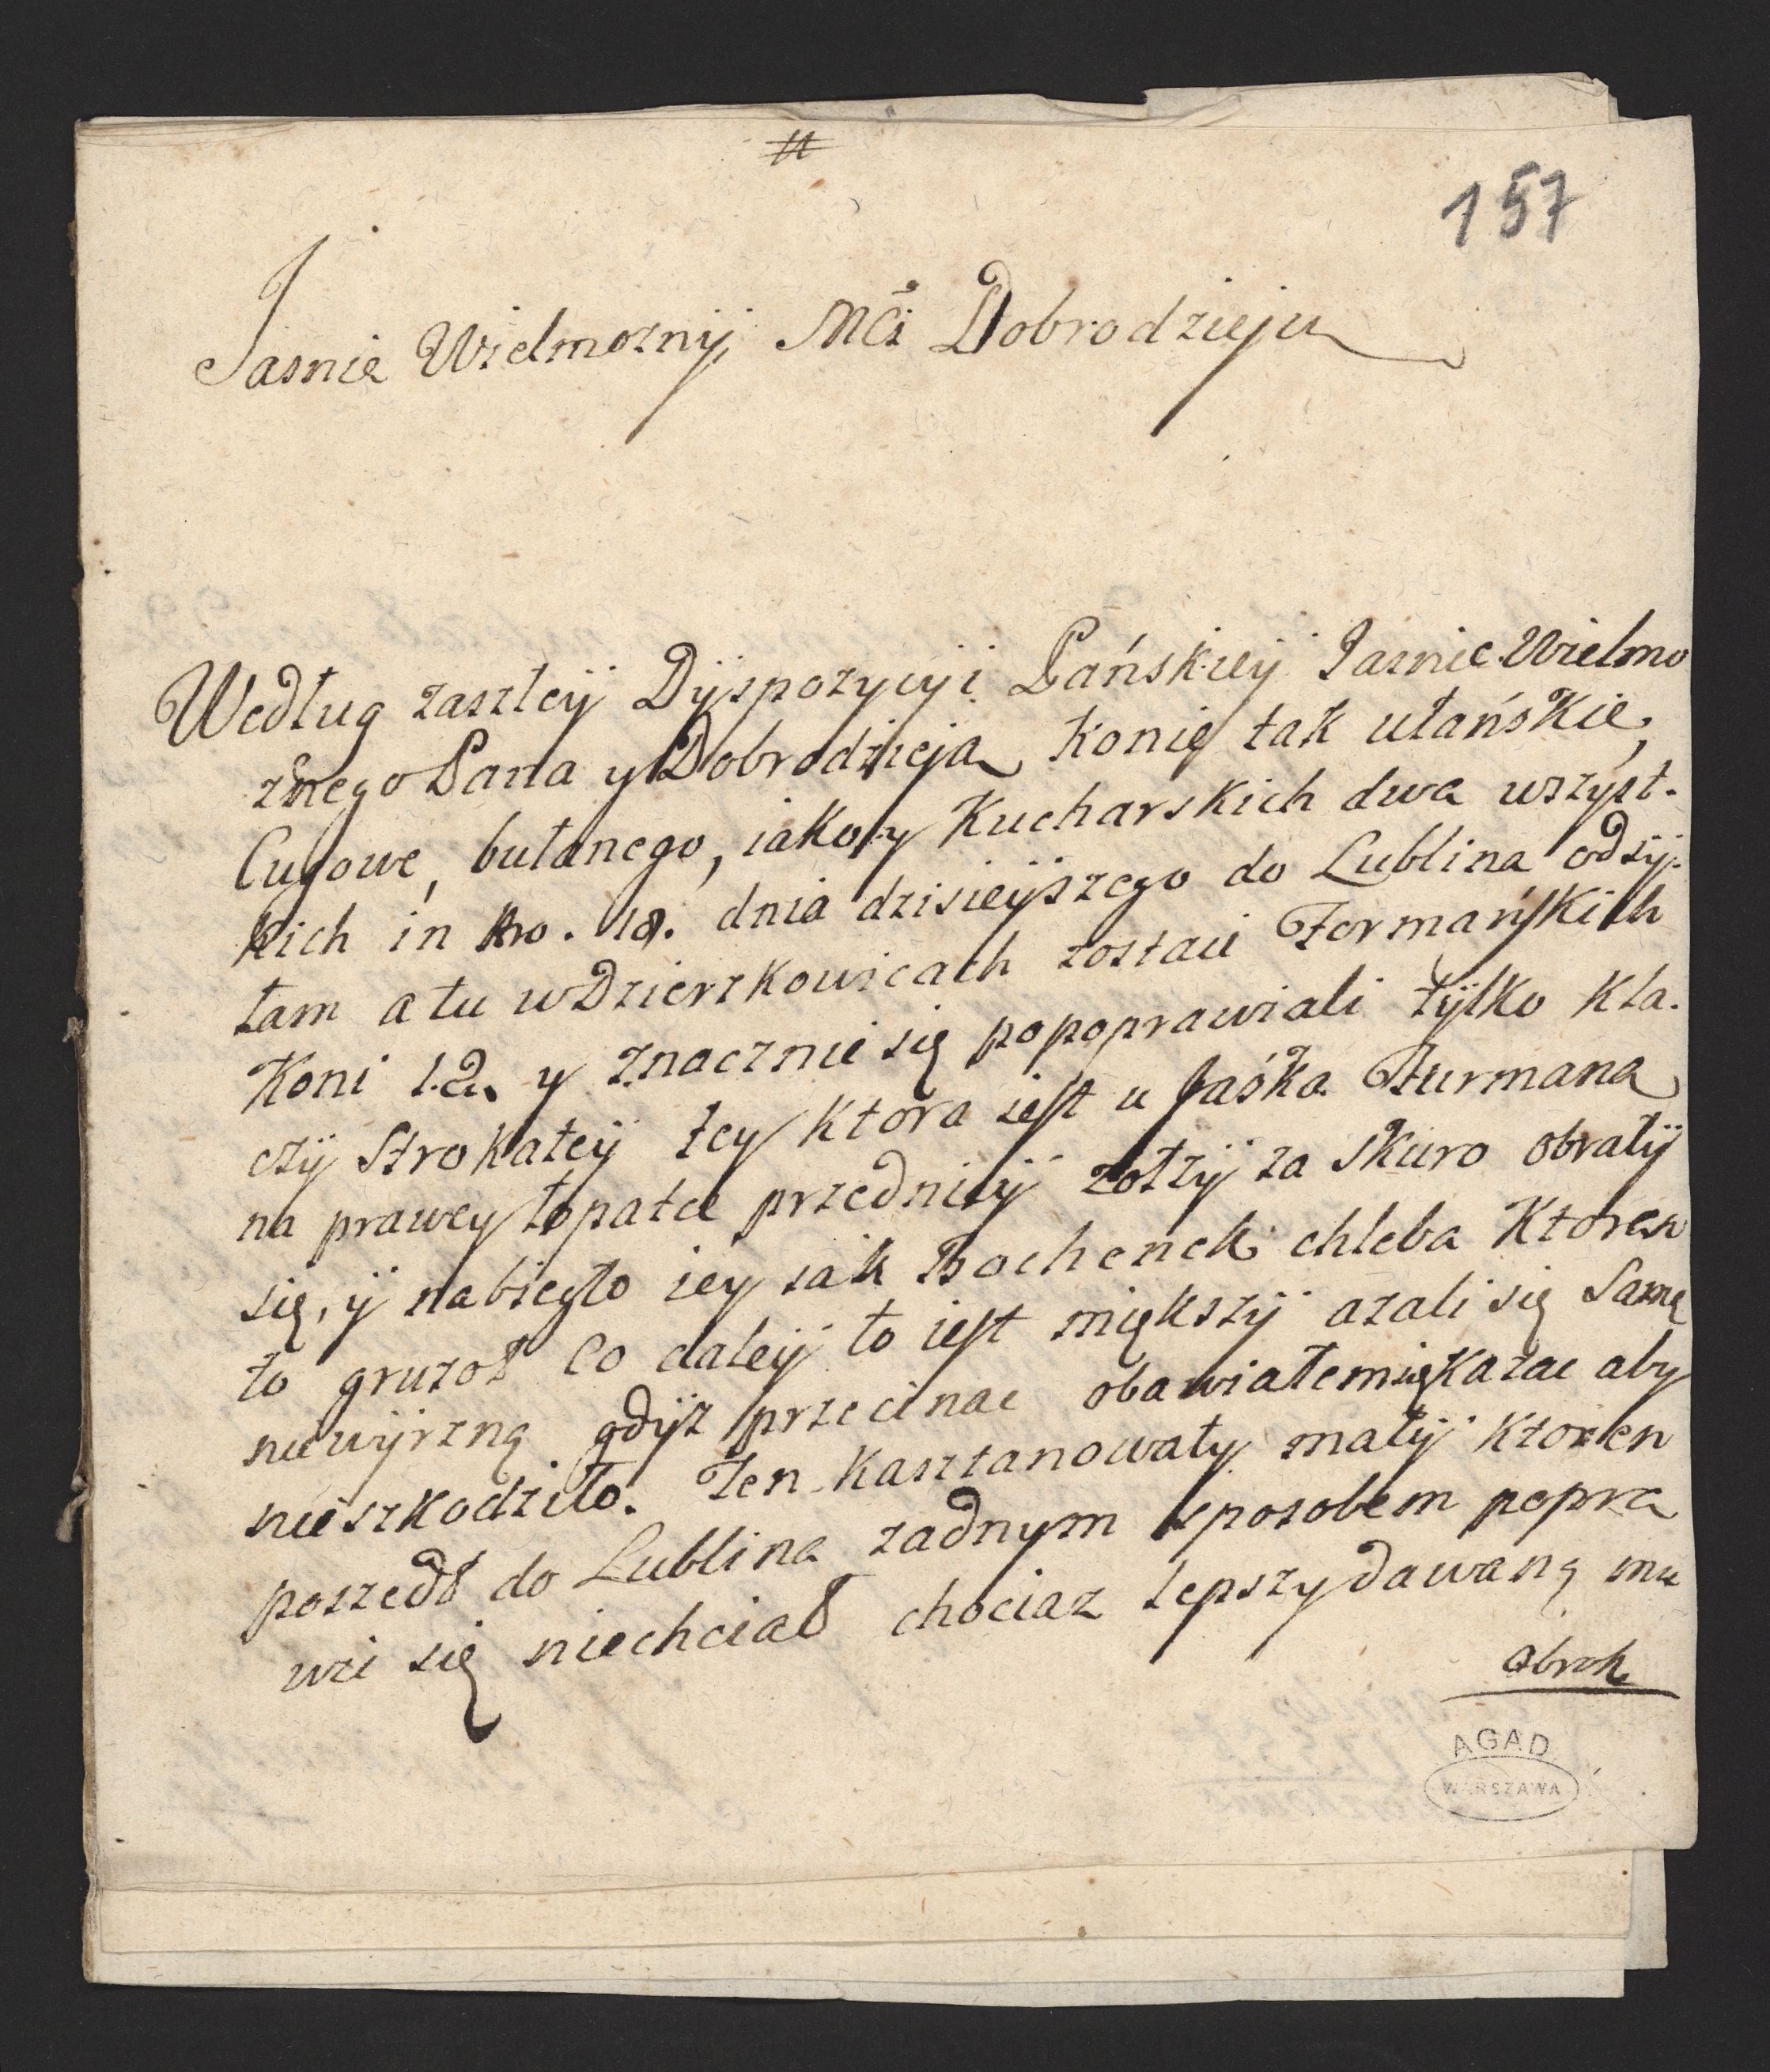 #
157
Jasnie Wielmoznÿ Mći Dobrodzieju
Według zaszłeÿ Dÿspozycyi Pańskieÿ Jasnie Wielmo
znego Pana y Dobrodzieja konie tak ułańskie,
Cugowe, bułanego, iako y Kucharskich dwa wszÿst-
kich in Nro. 18. dnia dzisieÿszego do Lublina odsÿ-
łam a tu w Dzierzkowicach zostaie Formańskich
Koni 12. y znacznie się popoprawiali tÿlko kla-
czÿ Strokateÿ tey ktora iest u Jaśka Furmana
na prawey łopatce przednieÿ zołzÿ za skuro obrałÿ
się, ÿ nabiegło iey iak Bochenek chleba ktoren
to gruzoł co daleÿ to iest miększÿ azali się Samę
niewÿrzną gdÿz przecinac obawiałemsię kazac aby
nieszkodziło. Ten kasztanowaty małÿ ktoren
poszedł do Lublina zadnym sposobem popra
wić się niechciał chociaz lepszy dawaną mu
obrok
AGAD
WARSZAWA